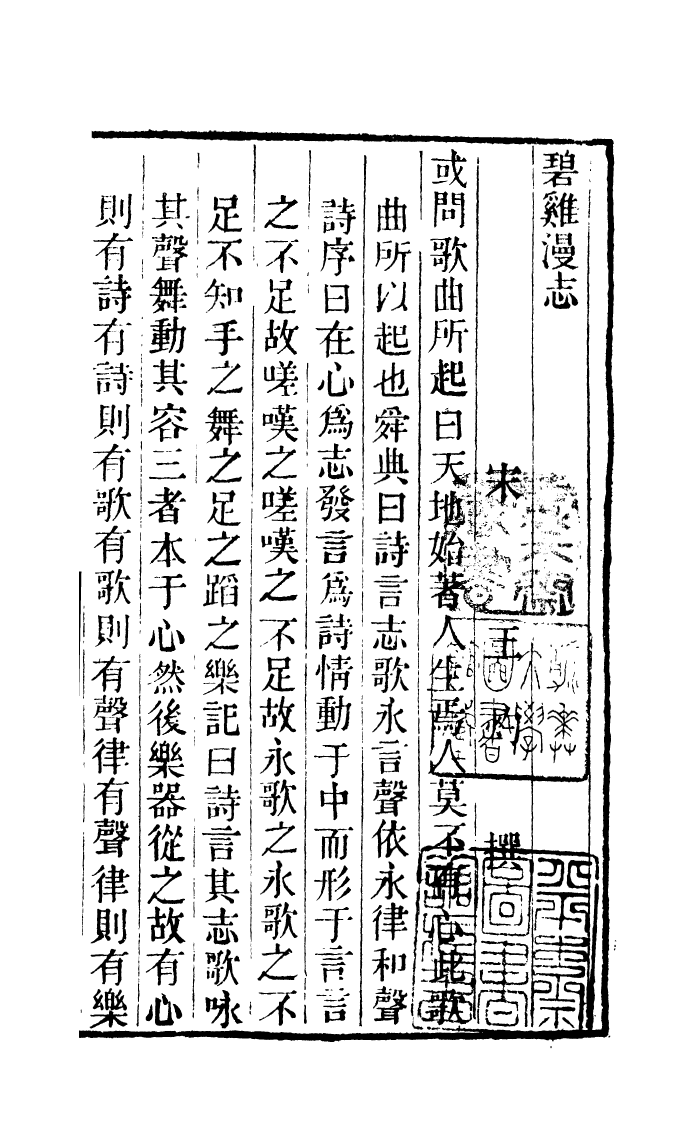 碧雞漫志
宋 王灼 撰
或問歌曲所起曰天地始著人生焉人莫不有心此歌
曲所以起也舜典曰詩言志歌永言聲依永律和聲
詩序曰在心爲志發言爲詩情動于中而形于言言
之不足故嗟嘆之嗟嘆之不足故永歌之永歌之不
足不知手之舞之足之蹈之樂記曰詩言其志歌咏
其聲舞動其容三者本于心然後樂器從之故有心
則有詩有詩則有歌有歌則有聲律有聲律則有樂